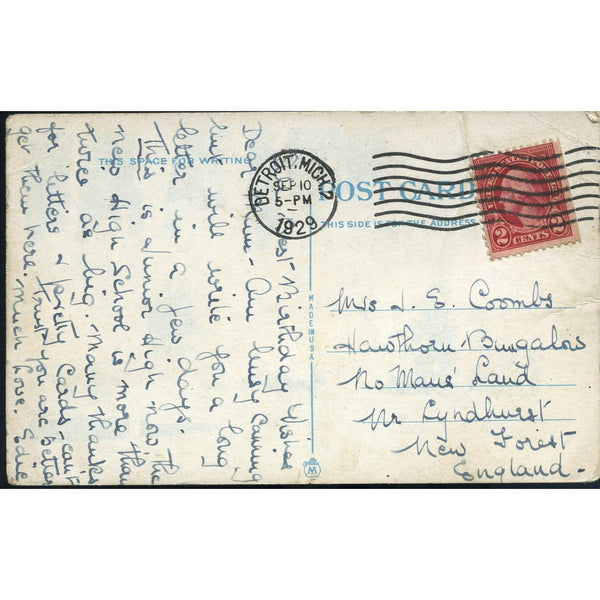 THIS SPACE FOR WRITING
Best Birthday Wishes
Dear Am busy Canning
but will write you a long
letter in a few days.
This is a Junior High now the
New High School is more than
twice as big. Many thanks
for letters & pretty Cards - can't
get them here. Trust you are better
Much Love. Edie
DETROIT, MICH. 2
SEP 10
5-PM
1929
POST CARD
THIS SIDE IS FOR THE ADDRESS
2 CENTS 2
MADE IN USA
M
Mrs J. E. Coombs
Hawthorn Bungalow
No Mans' Land
Nr Lyndhurst
New Forest
England -